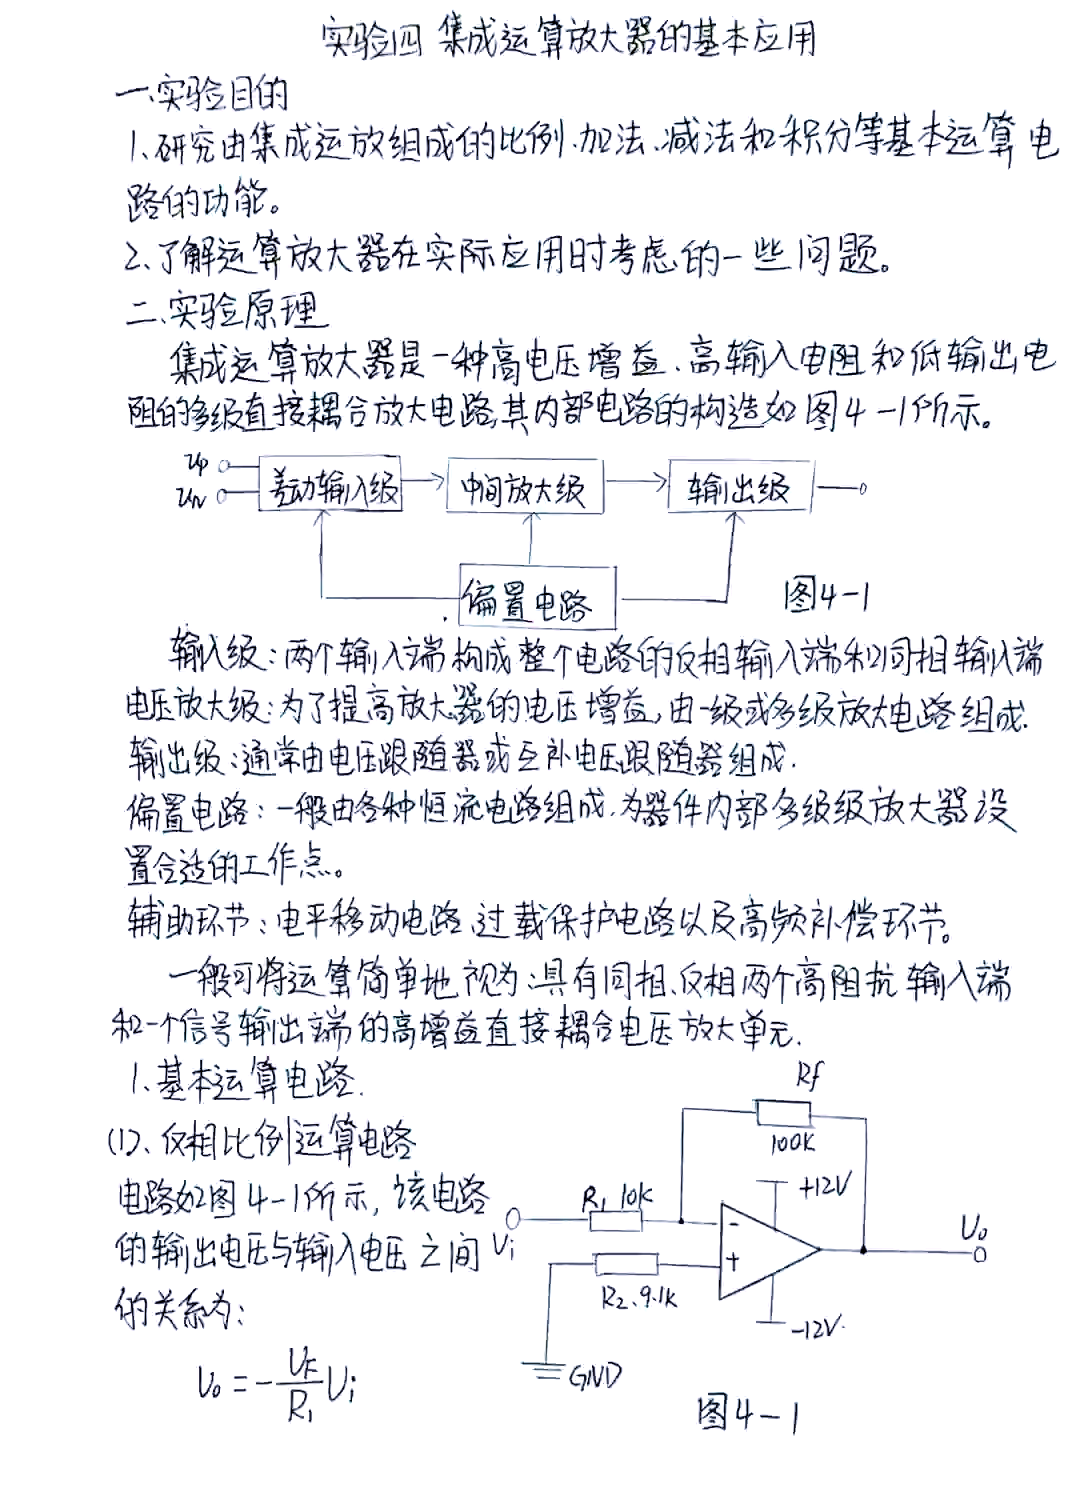 实验四 集成运算放大器的基本应用
一、实验目的
1、研究由集成运放组成的比例、加法、减法和积分等基本运算电
路的功能。
2、了解运算放大器在实际应用时考虑的一些问题。
二、实验原理
集成运算放大器是一种高电压增益、高输入电阻和低输出电
阻的多级直接耦合放大电路,其内部电路的构造如图4-1所示。
Up
UN
差动输入级
中间放大级
输出级
偏置电路
图4-1
输入级:两个输入端构成整个电路的反相输入端和同相输入端
电压放大级:为了提高放大器的电压增益,由一级或多级放大电路组成.
输出级:通常由电压跟随器或互补电压跟随器组成.
偏置电路:一般由各种恒流电路组成.为器件内部多级级放大器设
置合适的工作点。
辅助环节:电平移动电路、过载保护电路以及高频补偿环节。
一般可将运算简单地视为:具有同相、反相两个高阻抗输入端
和一个信号输出端的高增益直接耦合电压放大单元.
1、基本运算电路.
(1)、反相比例运算电路
电路如图4-1所示,该电路
的输出电压与输入电压之间
的关系为:
U₀=-UF/R₁Ui
Rf
100K
+12V
R₁ 10K
Vi
-
+
U₀
R₂、9.1K
-12V.
GND
图4-1